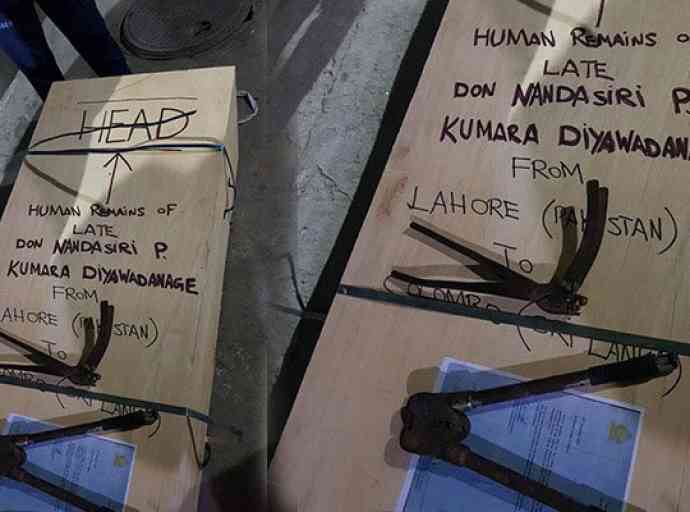 HEAD
HUMAN REMAINS OF
LATE
DON NANDASIRI P.
KUMARA DIYAWADANAGE
FROM
LAHORE (PAKISTAN)
To
COLOMBO (SRI LANKA
HUMAN REMAINS O
LATE
DON NANDASIRI P.
KUMARA DIYAWADANA
FROM
LAHORE (PAKISTAN)
To
COLOMBO (SRI LANKA